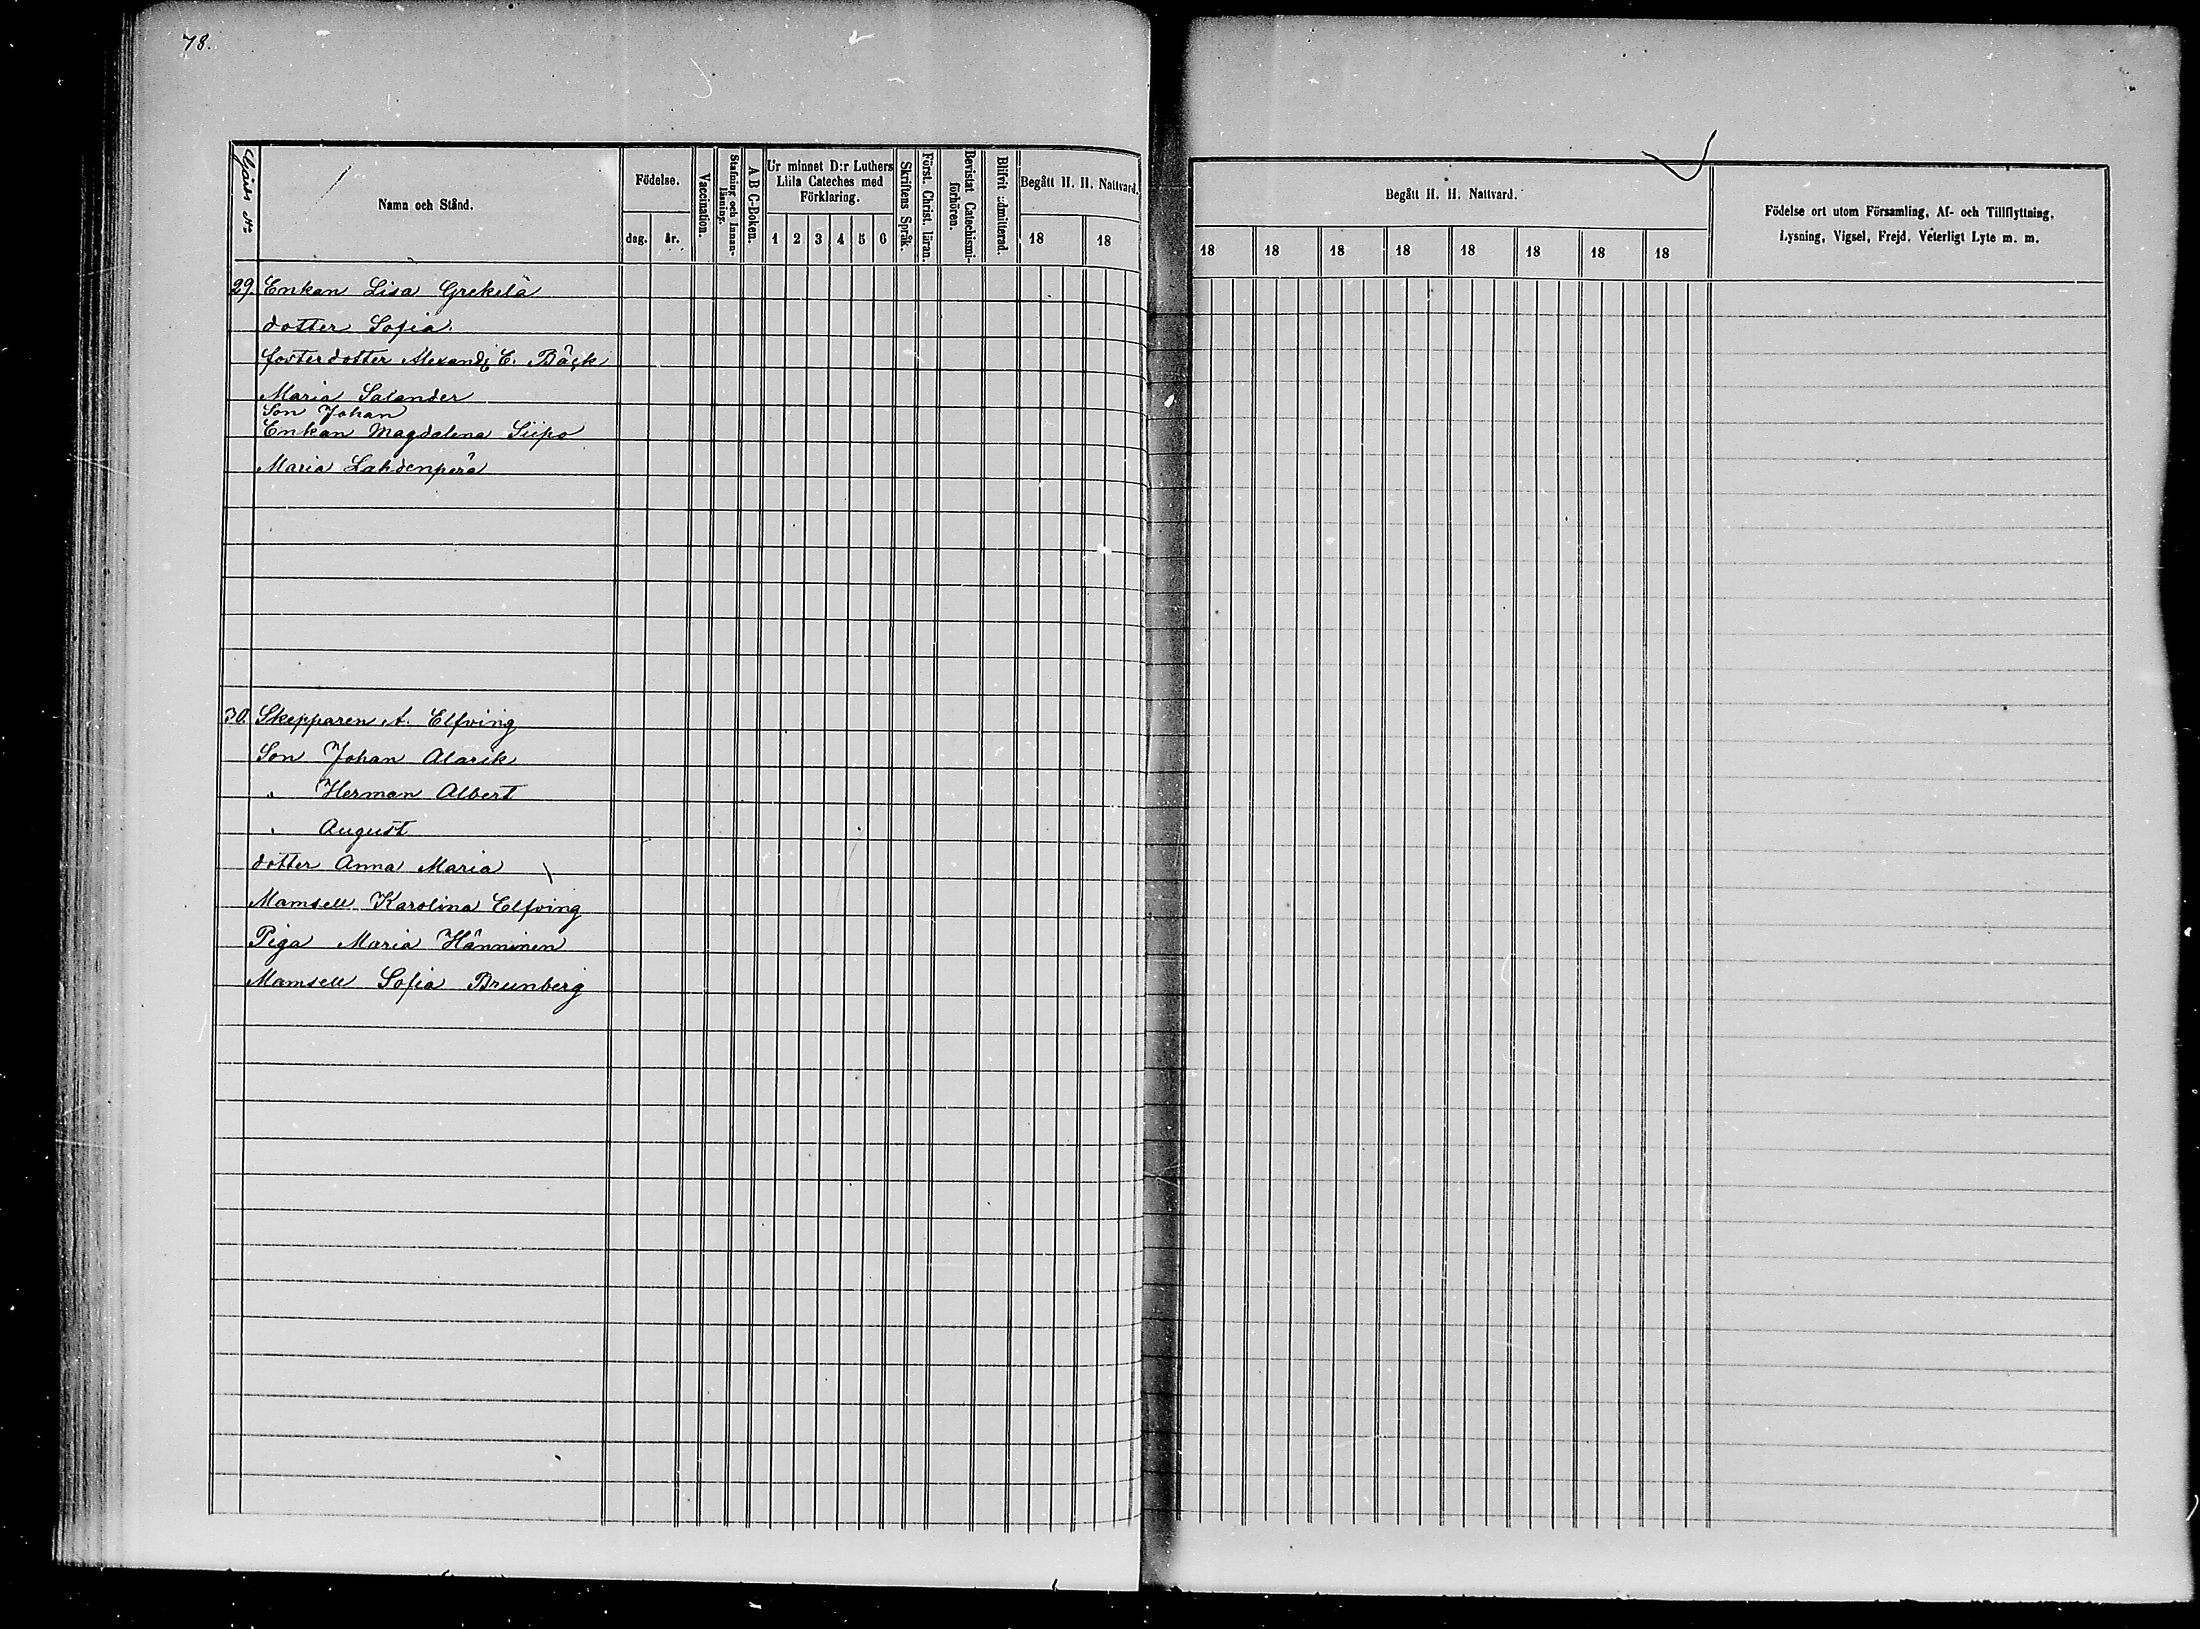 78.
Gårds No
Namn och Stånd.
Födelse.
dag.
år.
Vaccination.
Stafning och Innan-
läsning.
A B C-Boken.
Ur minnet D:r Luthers
Lilla Cateches med
Förklaring.
1 2 3 4 5 6
Skriftens Språk.
Först. Christ. läran.
Bevistat Catechismi-
förhören.
Blifvit admitterad.
Begått H. H. Nattvard.
18 18
Begått H. H. Nattvard.
18 18 18 18 18 18 18 18
Födelse ort utom Församling, Af- och Tillflyttning,
Lysning, Vigsel, Frejd, Veterligt Lyte m. m.
29. Enkan Lisa Grekelä
dotter Sofia
fosterdotter Alexandr. E. Bäck
Maria Salander
Son Johan
Enkan Magdalena Siipo
Maria Lahdenperä
30 Skepparen A. Elfving
Son Johan Alarik
" Herman Albert
" August
dotter Anna Maria
Mamsell Karolina Elfving
Piga Maria Hänninen
Mamsell Sofia Brunberg